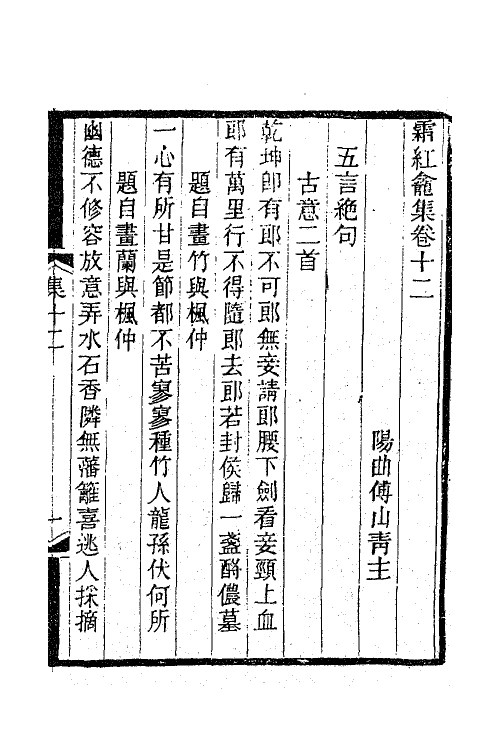 霜紅龕集卷十二
陽曲傅山青主
五言絶句
古意二首
乾坤即有郎不可郎無妾請郎腰下劍看妾頸上血
郎有萬里行不得隨郎去郎若封侯歸一盞酹儂墓
題自畫竹與楓仲
一心有所甘是節都不苦寥寥種竹人龍孫伏何所
題自畫蘭與楓仲
幽德不修容放意弄水石香隣無藩籬喜逃人採摘
集十二
一